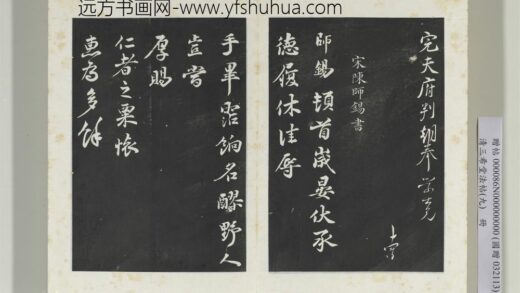 远方书画网- www.yfshuhua.com
完夫府判朝奉学兄
宋陳師錫書
師錫頓首歲晏伏承
德履休佳辱
手畢
餉名醪野人
豈嘗
厚賜
仁者之粟懷
惠為多餘
贈帖 000086N000000000 (國贈 032113)
清三希堂法帖(九) 冊